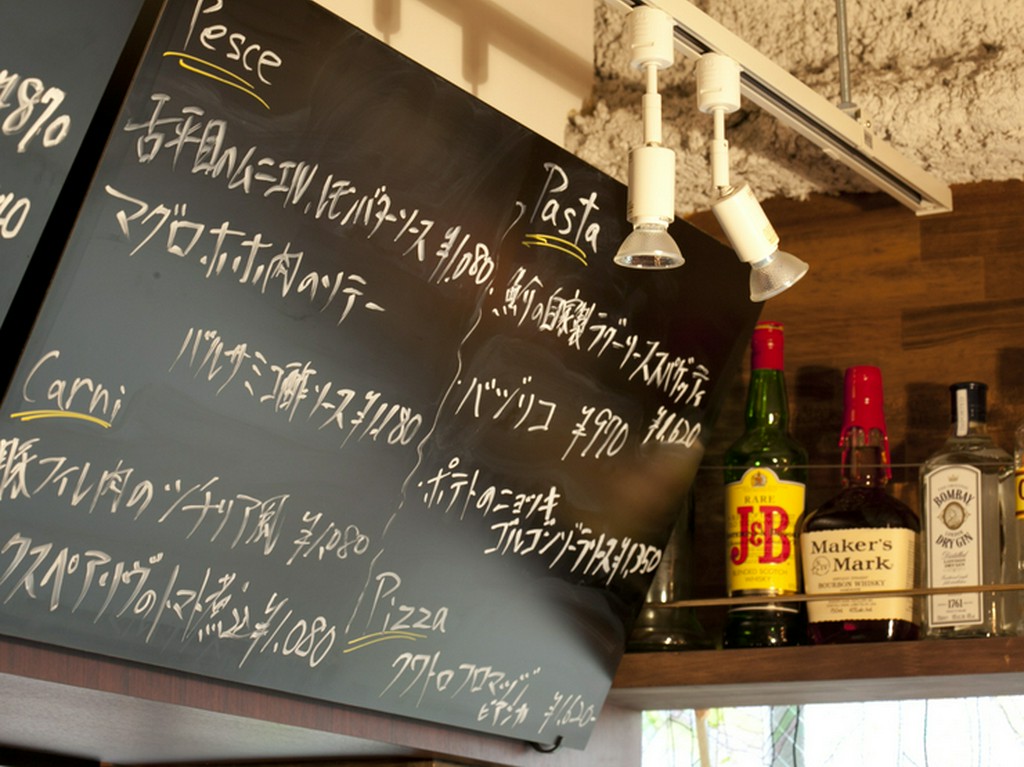 ¥870
Pesce
舌平目のムニエル、レモンバターソース ¥1,080
マグロ・ホホ肉のソテー
バルサミコ酢ソース ¥1,180
Carni
豚フィレ肉のシチリア風 ¥1,080
スペアリヴのトマト煮込 ¥1,080
Pasta
・魚介の自家製ラグーソーススパゲッティ
¥1,620
・バジリコ ¥970
・ポテトのニョッキ
ゴルゴンゾーラソース ¥1,350
Pizza
クワトロフロマッジ
ビアンカ ¥1,620-
RARE
J&B
BLENDED SCOTCH
WHISKY
Maker's
Mark
BOURBON WHISKY
BOMBAY
DRY GIN
Distilled
1761